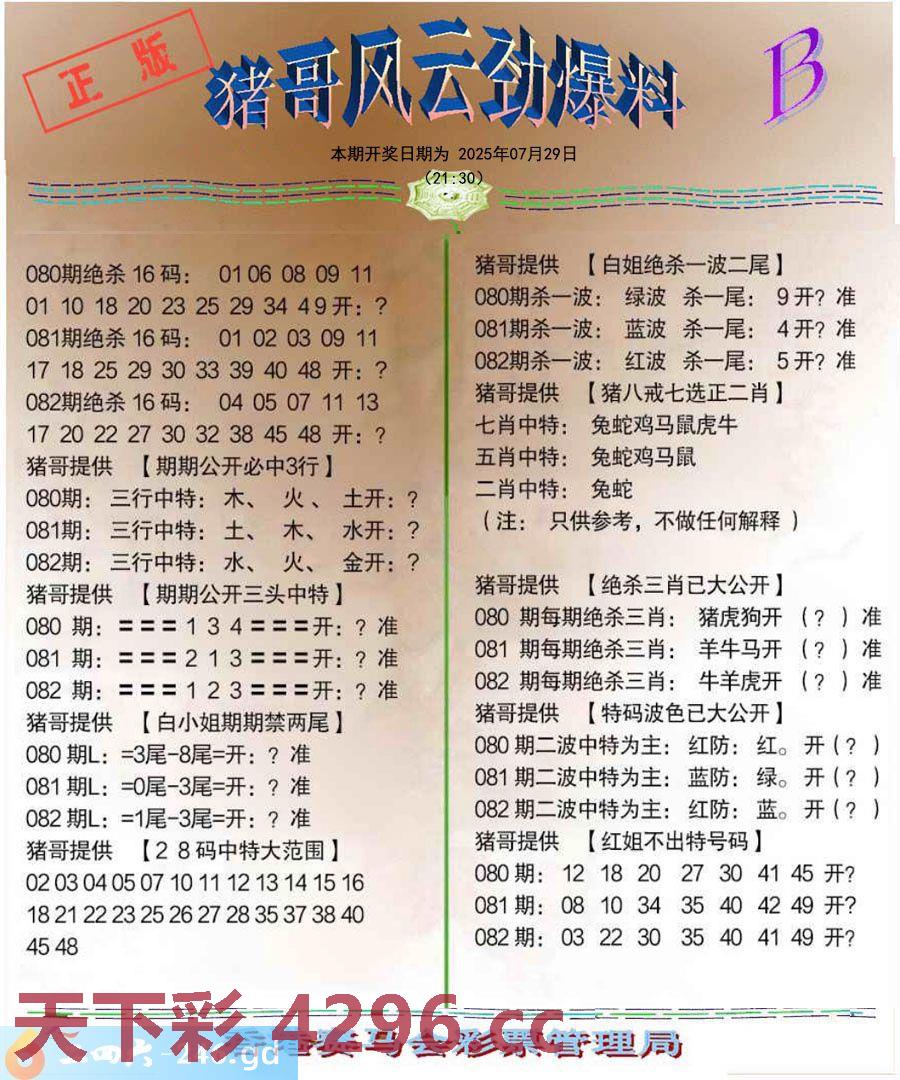 正版
猪哥风云劲爆料
B
本期开奖日期为 2025年07月29日
(21:30)
080期绝杀16码： 01 06 08 09 11
01 10 18 20 23 25 29 34 49开：?
081期绝杀16码： 01 02 03 09 11
17 18 25 29 30 33 39 40 48 开：?
082期绝杀16码： 04 05 07 11 13
17 20 22 27 30 32 38 45 48 开：?
猪哥提供 【期期公开必中3行】
080期：三行中特：木、 火、 土开：?
081期：三行中特：土、 木、 水开：?
082期：三行中特：水、 火、 金开：?
猪哥提供 【期期公开三头中特】
080 期：〓〓〓1 3 4〓〓〓开：? 准
081 期：〓〓〓2 1 3〓〓〓开：? 准
082 期：〓〓〓1 2 3〓〓〓开：? 准
猪哥提供 【白小姐期期禁两尾】
080期L：=3尾-8尾=开：? 准
081期L：=0尾-3尾=开：? 准
082期L：=1尾-3尾=开：? 准
猪哥提供 【28码中特大范围】
02 03 04 05 07 10 11 12 13 14 15 16
18 21 22 23 25 26 27 28 35 37 38 40
45 48
猪哥提供 【白姐绝杀一波二尾】
080期杀一波： 绿波 杀一尾： 9开? 准
081期杀一波： 蓝波 杀一尾： 4开? 准
082期杀一波： 红波 杀一尾： 5开? 准
猪哥提供 【猪八戒七选正二肖】
七肖中特： 兔蛇鸡马鼠虎牛
五肖中特： 兔蛇鸡马鼠
二肖中特： 兔蛇
（注： 只供参考，不做任何解释 ）
猪哥提供 【绝杀三肖已大公开】
080 期每期绝杀三肖： 猪虎狗开 （? ）准
081 期每期绝杀三肖： 羊牛马开 （? ）准
082 期每期绝杀三肖： 牛羊虎开 （? ）准
猪哥提供 【特码波色已大公开】
080期二波中特为主：红防：红。开(? )
081期二波中特为主：蓝防：绿。开(? )
082期二波中特为主：红防：蓝。开(? )
猪哥提供 【红姐不出特号码】
080期： 12 18 20 27 30 41 45 开?
081期： 08 10 34 35 40 42 49 开?
082期： 03 22 30 35 40 41 49 开?
天下彩 4296.cc
马会彩票管理局